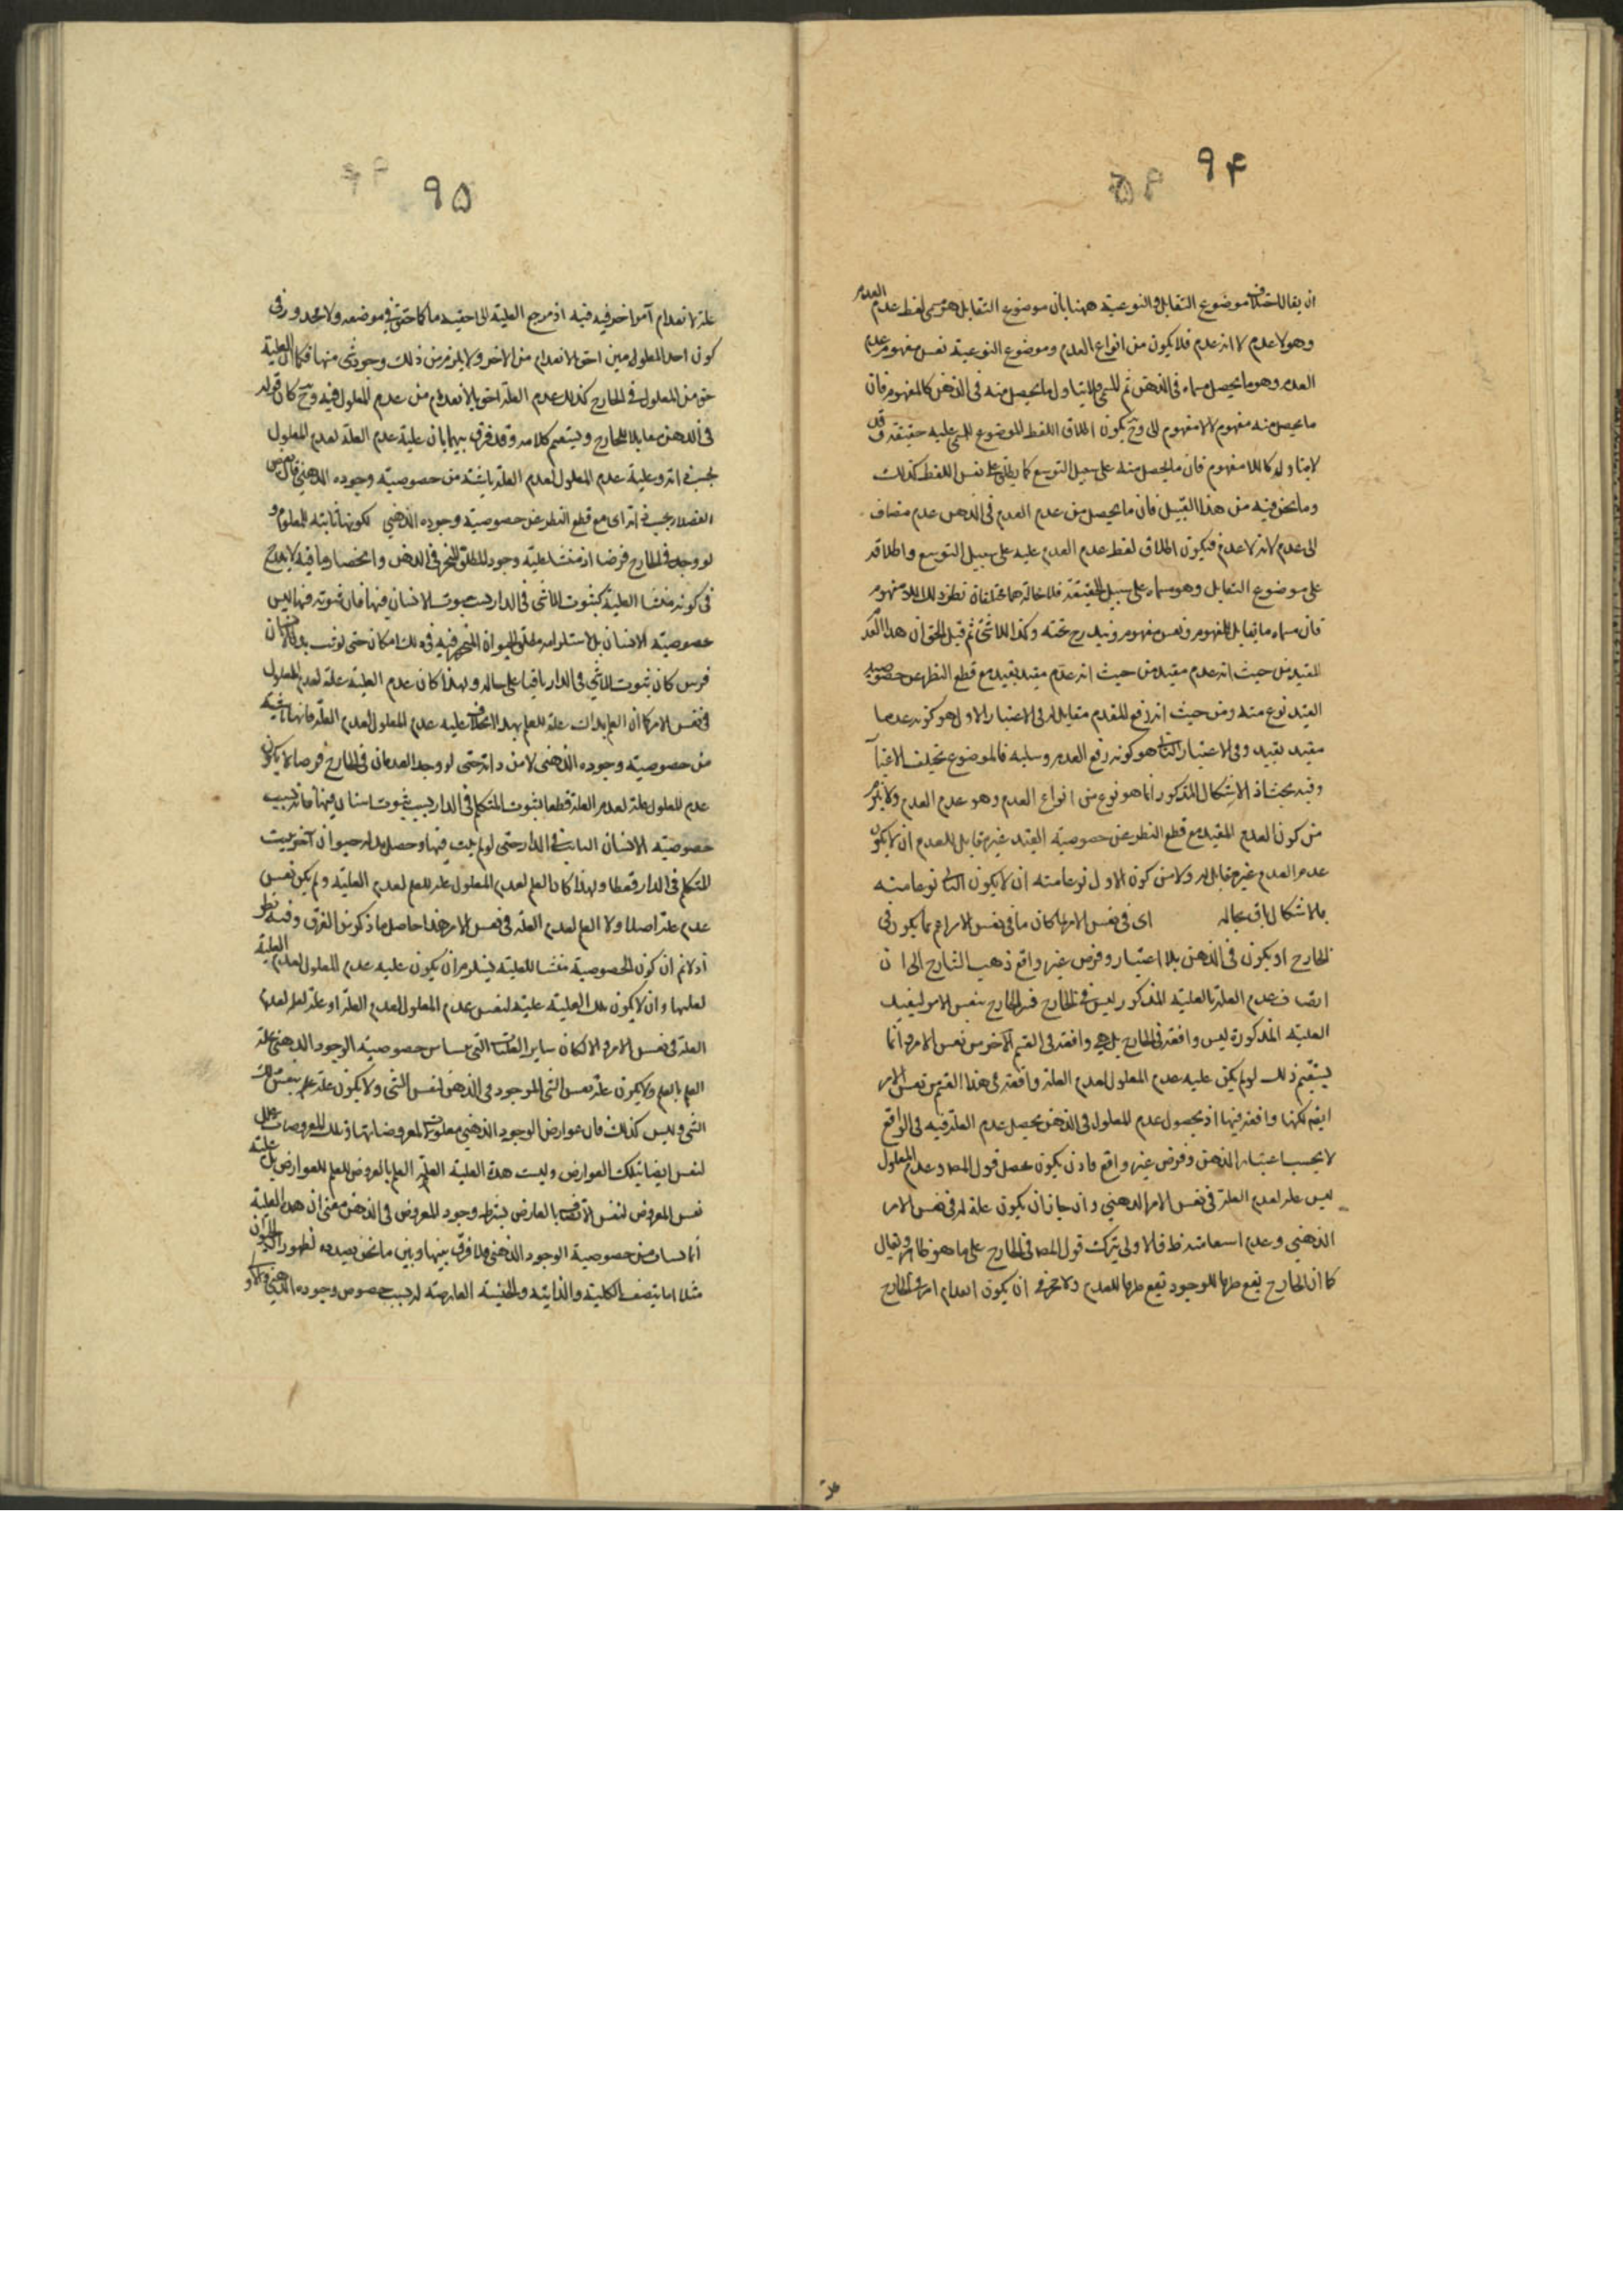 ۹۴
ان يقال اختلاف موضوع التقابل والنوعية ههنا بان موضوع التقابل هو مسمى لفظ عدم العدم
وهو لا عدم لا انه عدم فلا يكون من انواع العدم وموضوع النوعية نفس مفهوم عدم
العدم وهو ما يحصل مسماه في الذهن ثم المسمى لا يتناول ما يحصل منه في الذهن كالمفهوم فان
ما يحصل منه مفهوم لا لا مفهوم وح يكون اطلاق اللفظ الموضوع للمسمى عليه حقيقة وقد
لا يتناوله كاللا مفهوم فان ما يحصل منه على سبيل التوسع كما يطلق على نفس اللفظ كذلك
وما نحن فيه من هذا القبيل فان ما يحصل من عدم العدم في الذهن عدم مضاف
الى عدم لا انه لا عدم فيكون اطلاق لفظ عدم العدم عليه على سبيل التوسع واطلاقه
على موضوع التقابل وهو مسماه على سبيل الحقيقة فلا محالة هما مختلفان نظير ذلك اللا مفهوم
فان مسماه ما يقابل المفهوم ونفس مفهومه يندرج تحته وكذا اللاشئ ثم قيل الحق ان هذا العدم
المقيد من حيث انه عدم مقيد من حيث انه عدم مقيد بقيد مع قطع النظر عن خصوصية
القيد نوع منه ومن حيث انه رفع للعدم مقابل له في الاعتبار الاول هو كونه عدما
مقيد بقيد وفي الاعتبار الثاني هو كونه رفع العدم وسلبه فالموضوع يختلف بالاعتبار
وفيه بحث اذ الاشكال المذكور انما هو نوع من انواع العدم وهو عدم العدم ولا يلزم
من كون العدم المقيد مع قطع النظر عن خصوصية القيد غير مقابل للعدم ان لا يكون
عدم العدم غير مقابل له ولا من كون الاول نوعا منه ان لا يكون الثاني نوعا منه
فالاشكال باق بحاله اى في نفس الامر لما كان ما في نفس الامر اعم مما يكون في
الخارج او يكون في الذهن بلا اعتبار وفرض غير واقع ذهب الشارح الى ان
اتصاف عدم العلة بالعلية المذكور ليس في الخارج فسر الخارج بنفس الامر ليفيد
العلية المذكورة ليس واقعة في الخارج بل هي واقعة في القسم الآخر من نفس الامر وانما
يستقيم ذلك لو لم يكن علية عدم المعلول لعدم العلة واقعة في هذا القسم من نفس الامر
ايضا لكنها واقعة فيها اذ بحصول عدم المعلول في الذهن يحصل عدم العلة فيه في الواقع
لا بحسب اعتبار الذهن وفرض غير واقع فاذن يكون محصل قول المصـ وعدم المعلول
ليس علة لعدم العلة في نفس الامر الذهني وان جاز ان يكون علة له في نفس الامر
الذهني وعدم استقامته ظ فالاولى يترك قول المصـ في الخارج على ما هو ظاهره ويقال
كما ان الخارج يقع ظرفا للوجود يقع ظرفا للعدم ولا حجر في ان يكون انعدام امر في الخارج
۹۵
علة لانعدام آمر اخر فيه فيه اذ مرجع العلية الى احقيه ما كما حقق في موضعه ولا محذور في
كون احد المعلولين احق بالانعدام من الاخر ولا يلزم من ذلك وجود شئ منها فكما ان العلية
حق من المعلول في الخارج كذلك عدم العلة احق بالانعدام من عدم المعلول فيه وح كان قوله
في الذهن مقابلا للخارج ويستقيم كلامه وقد فرق بينهما بان علية عدم العلة لعدم المعلول
بحسب ذاته وعلية عدم المعلول لعدم العلة ناشئة من خصوصية وجوده الذهني قال بعض
الفضلاء بحسب ذاته اى مع قطع النظر عن خصوصية وجوده الذهني لكونها ثابتة للمعلوم و
لو وجد في الخارج فرضا اذ منشا علية وجود المطلق المنحصر في الذهن وانحصارها فيه لا يقدح
في كونه منشا العلية كثبوت اللاشئ في الدار بثبوت الانسان فيها فان ثبوته فيها ليس
خصوصية الانسان بل لاستلزامه مطلق الحيوان المنحصر فيه في ذلك امكان حتى لو ثبت بدل الانسان
فرس كان ثبوت اللاشئ في الدار باقيا على حاله ولهذا كان عدم العلية علة لعدم المعلول
في نفس الامر كما ان العلم بذاك علة للعلم بهذا بخلاف علية عدم المعلول لعدم العلة فانها ناشئة
من خصوصية وجوده الذهني لا من ذاته حتى لو وجد العدمان في الخارج فرضا لا يكون
عدم المعلول علة لعدم العلة قطعا كثبوت المتكلم في الدار بسبب ثبوت انسان فيها فانه بسبب
خصوصية الانسان الثابت في الدار حتى لو لم يثبت فيها وحصل بدله حيوان آخر لم يثبت
المتكلم في الدار قطعا ولهذا كان العلم لعدم المعلول علة للعلم لعدم العلية ولم يكن نفس
عدم علة اصلا ولا العلم لعدم العلة في نفس الامر هذا حاصل ما ذكر من الفرق وفيه نظر
اذ لانم ان كون الخصوصية منشا للعلية يستلزم ان يكون علية عدم المعلول لعدم العلة
لعلمها وان لا يكون تلك العلية علية لنفس عدم المعلول لعدم العلة او علة لعلم لعدمها
العلة في نفس الامر والا لكان ساير العلل التي تنشا من خصوصية الوجود الذهني علة
العلم بالعلم ولا يكون علة نفس الشئ الموجود في الذهن لنفس الشئ ولا يكون علة علم بنفس ذلك
الشئ وليس كذلك فان عوارض الوجود الذهني معلولة لمعروضاتها وتلك المعروضات علل
لنفس ايضا بتلك العوارض وليست هذه العلية العلم العلم بالمعروض للعلم للعوارض بل علية
نفس المعروض لنفس الاتصاف بالعارض بشرط وجود المعروض في الذهن معنى ان هذه العلية
انما نشات من خصوصية الوجود الذهني فلا فرق بينها وبين ما نحن بصدده لظهور ان الحيوان
مثلا انما يتصف بالكلية والذاتية والجنسية العارضة له بسبب خصوص وجوده الذهني
علة